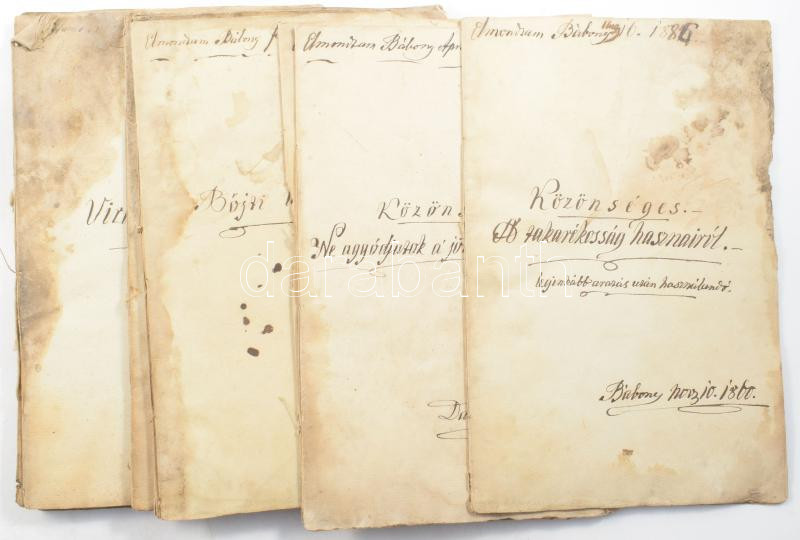 Elmondtam Bábony
Bőjti
Elmondtam Bábony Apr
Közöns
Ne agyódjatok a jö
Elmondtam Bábony 10. 1886
Közönséges.–
A takarékosság hasznairól.–
legjenkább aratás után használandó.
Bábony 10. 1860.
darabanth